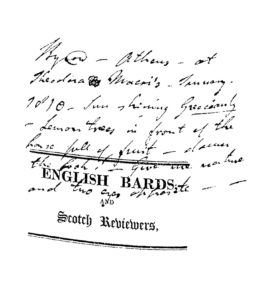 Byron – Athens – at
Theodora Macri's – January
1810 – Sun shining Grecianly
– Lemon trees in front of the
house full of fruit – damn
the book! Give me nature
and two eyes opposite – –
ENGLISH BARDS,
AND
Scotch Reviewers,